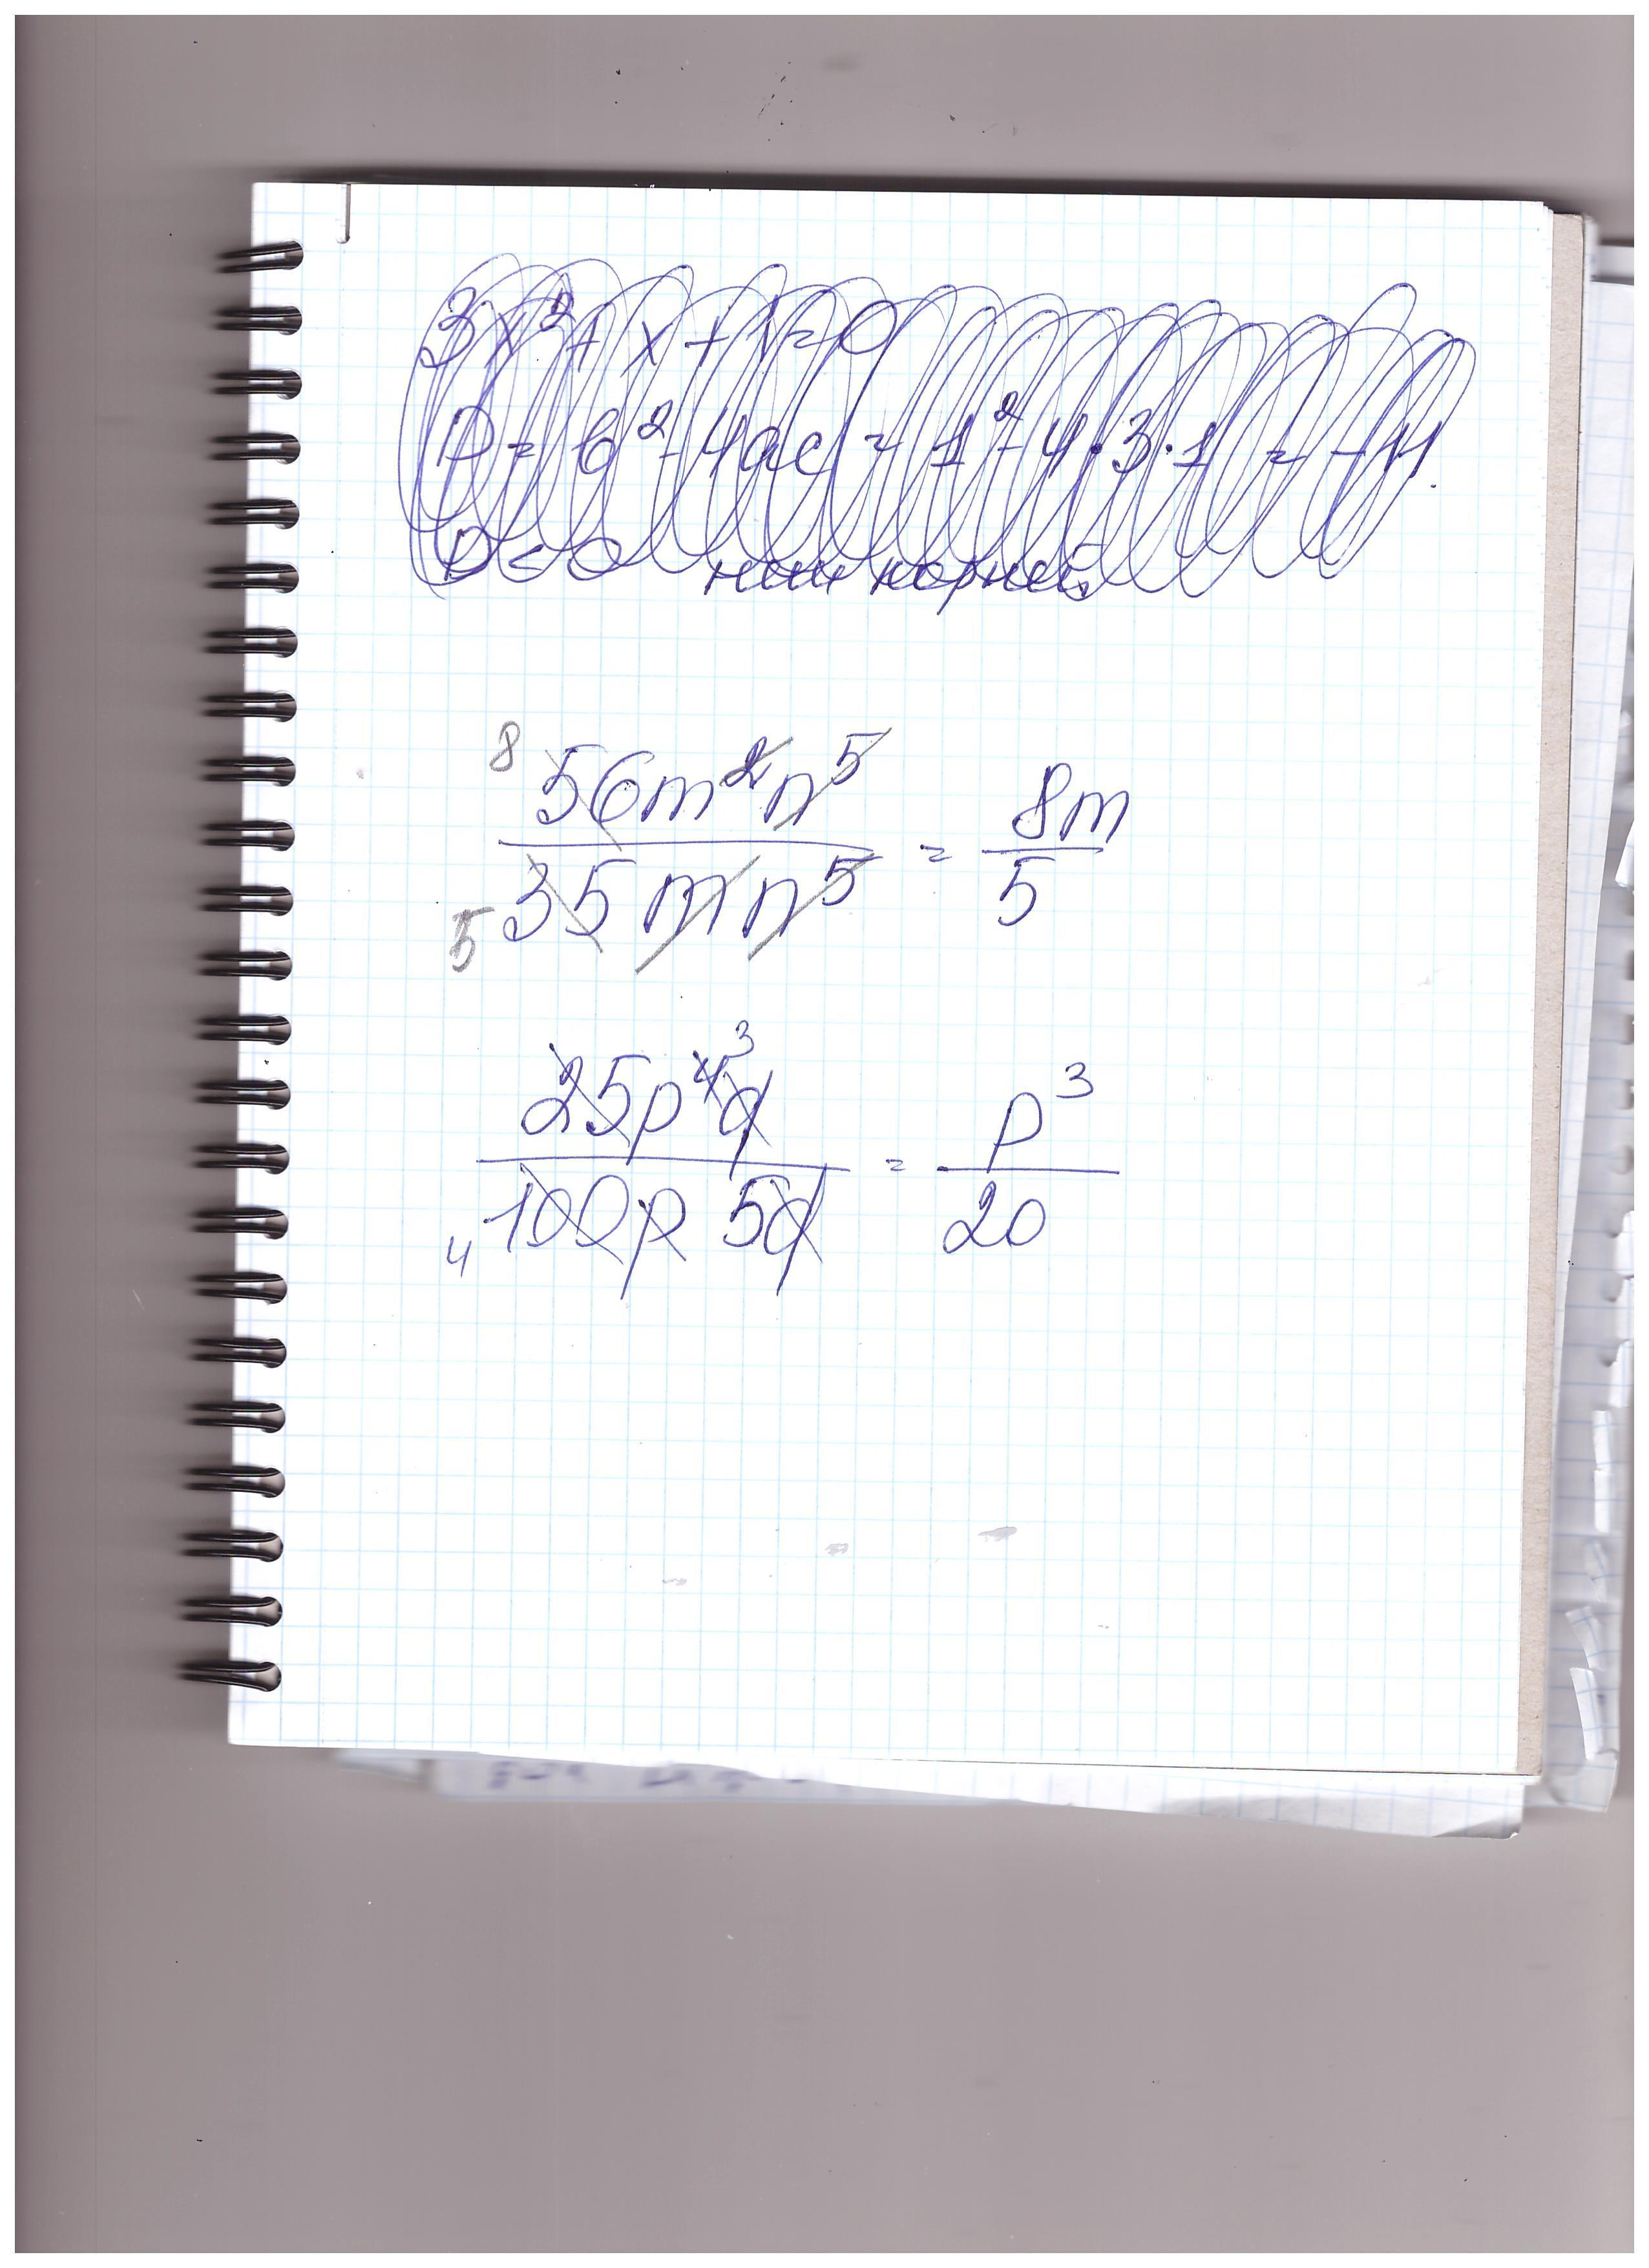 3x² + x + 1 = 0
D = b² - 4ac = 1² - 4·3·1 = -11
D < 0 нет корней
8 56m²n⁵ / 5 35mn⁵ = 8m / 5
25p⁴ ³q / 4 100p 5q = p³ / 20